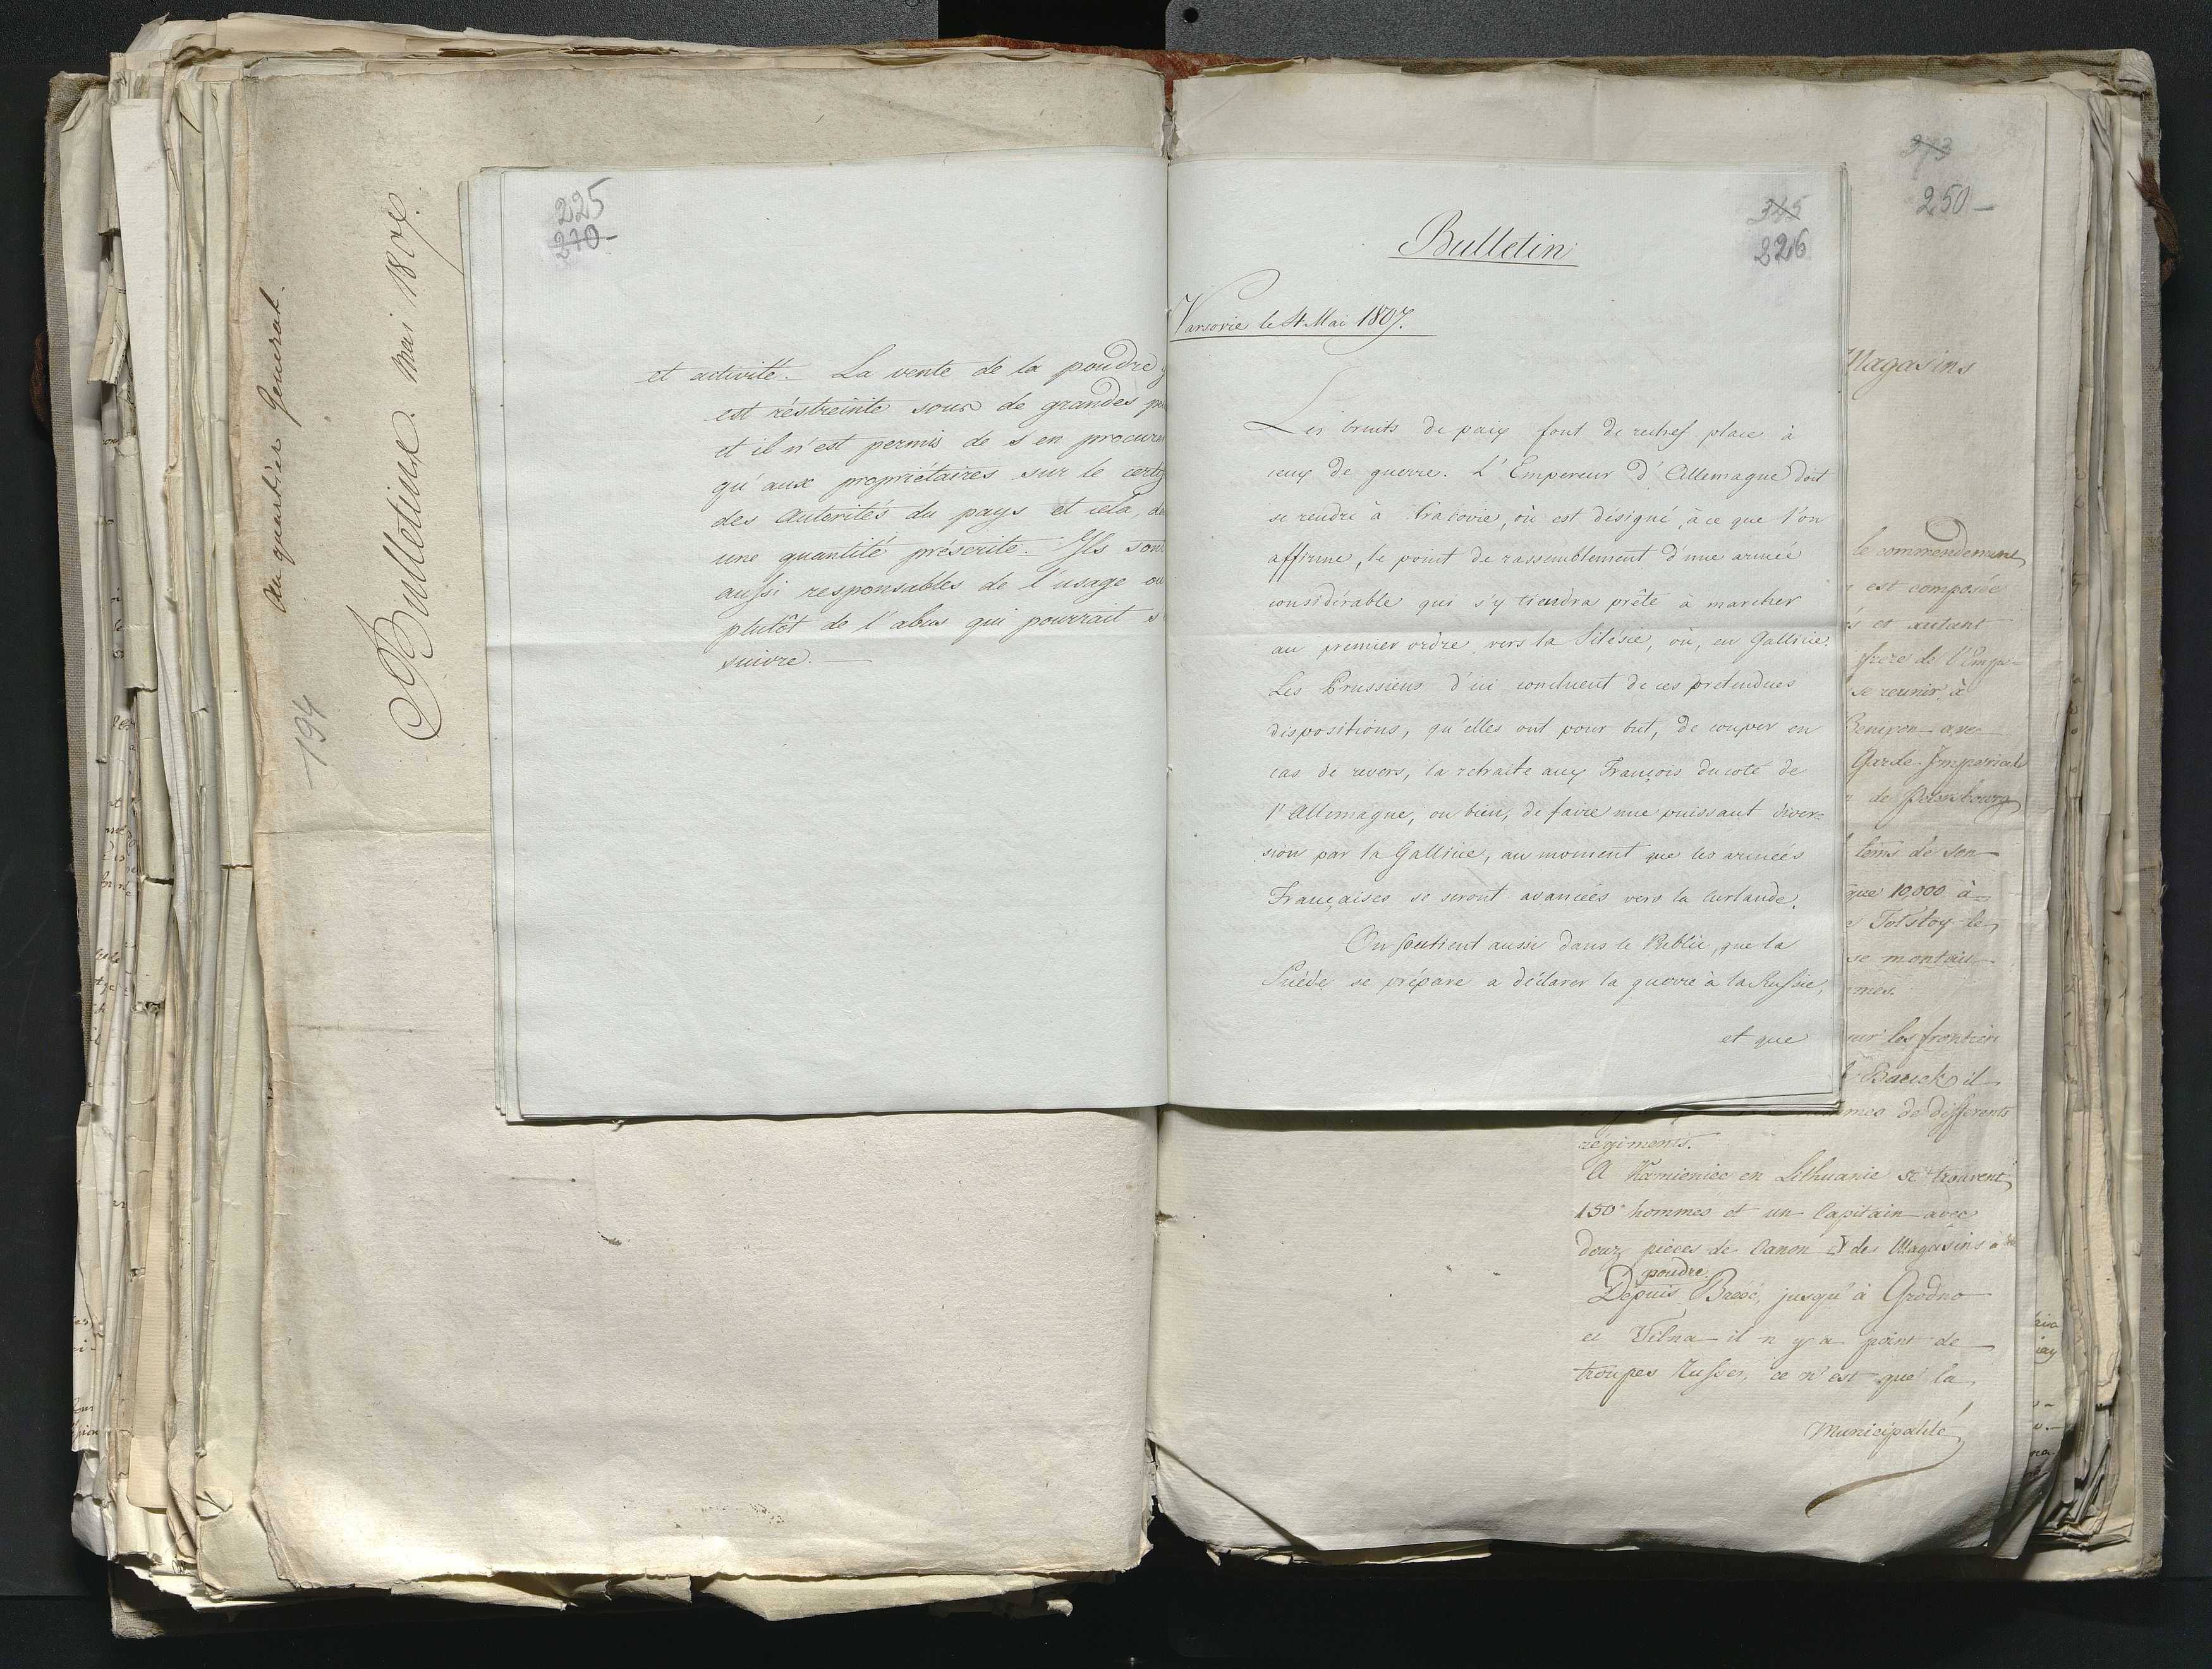 au quartier General.
Bulletins. mai 1807.
194
225
270
et activité. La vente de la poudre y
est réstreinte sous de grandes
et il n'est permis de s'en procurer
qu'aux propriétaires sur le
des Autorités du pays et cela,
une quantité préscrite. Ils sont
aussi responsables de l'usage ou
plutôt de l'abus qui pourrait s
suivre. —
345
226
Bulletin
Varsovie le 4 Mai 1807.
Les bruits de paix font derechef place à
ceux de guerre. L'Empereur d'Allemagne doit
se rendre à Krakovie, où est désigné, à ce que l'on
affirme, le point de rassemblement d'une armée
considérable qui s'y tiendra prête à marcher
au premier ordre vers la Silésie, où, en Gallicie.
Les Prussiens d'ici concluent de ces prétendues
dispositions, qu'elles ont pour but, de couper en
cas de revers, la retraite aux François du coté de
l'Allemagne, ou bien, de faire une puissant diver=
sion par la Gallicie, au moment que les armées
Françaises se seront avancées vers la Curlande.
On soutient aussi dans le Public, que la
Suéde se prépare a déclarer la guerre à la Russie,
et que
273
250
Magasins
le commendement
est composée
és et autant
frere de l'Empe-
se reunir à
avec
Garde-Imperiale
de Petersbourg
tems de son
que 10,000 à
Tolstoy le
se montait
mes.
sur les frontièr
il
mmes de differents
régiments.
A Kamieniec en Lithuanie se trouvent
150 hommes et un Capitain avec
deux pièces de Canon & des Magasins à
poudre.
Depuis Brzesc, jusqu'à Grodno
et Vilna il n'y a point de
troupes Russes, ce n'est que la
Municipalité